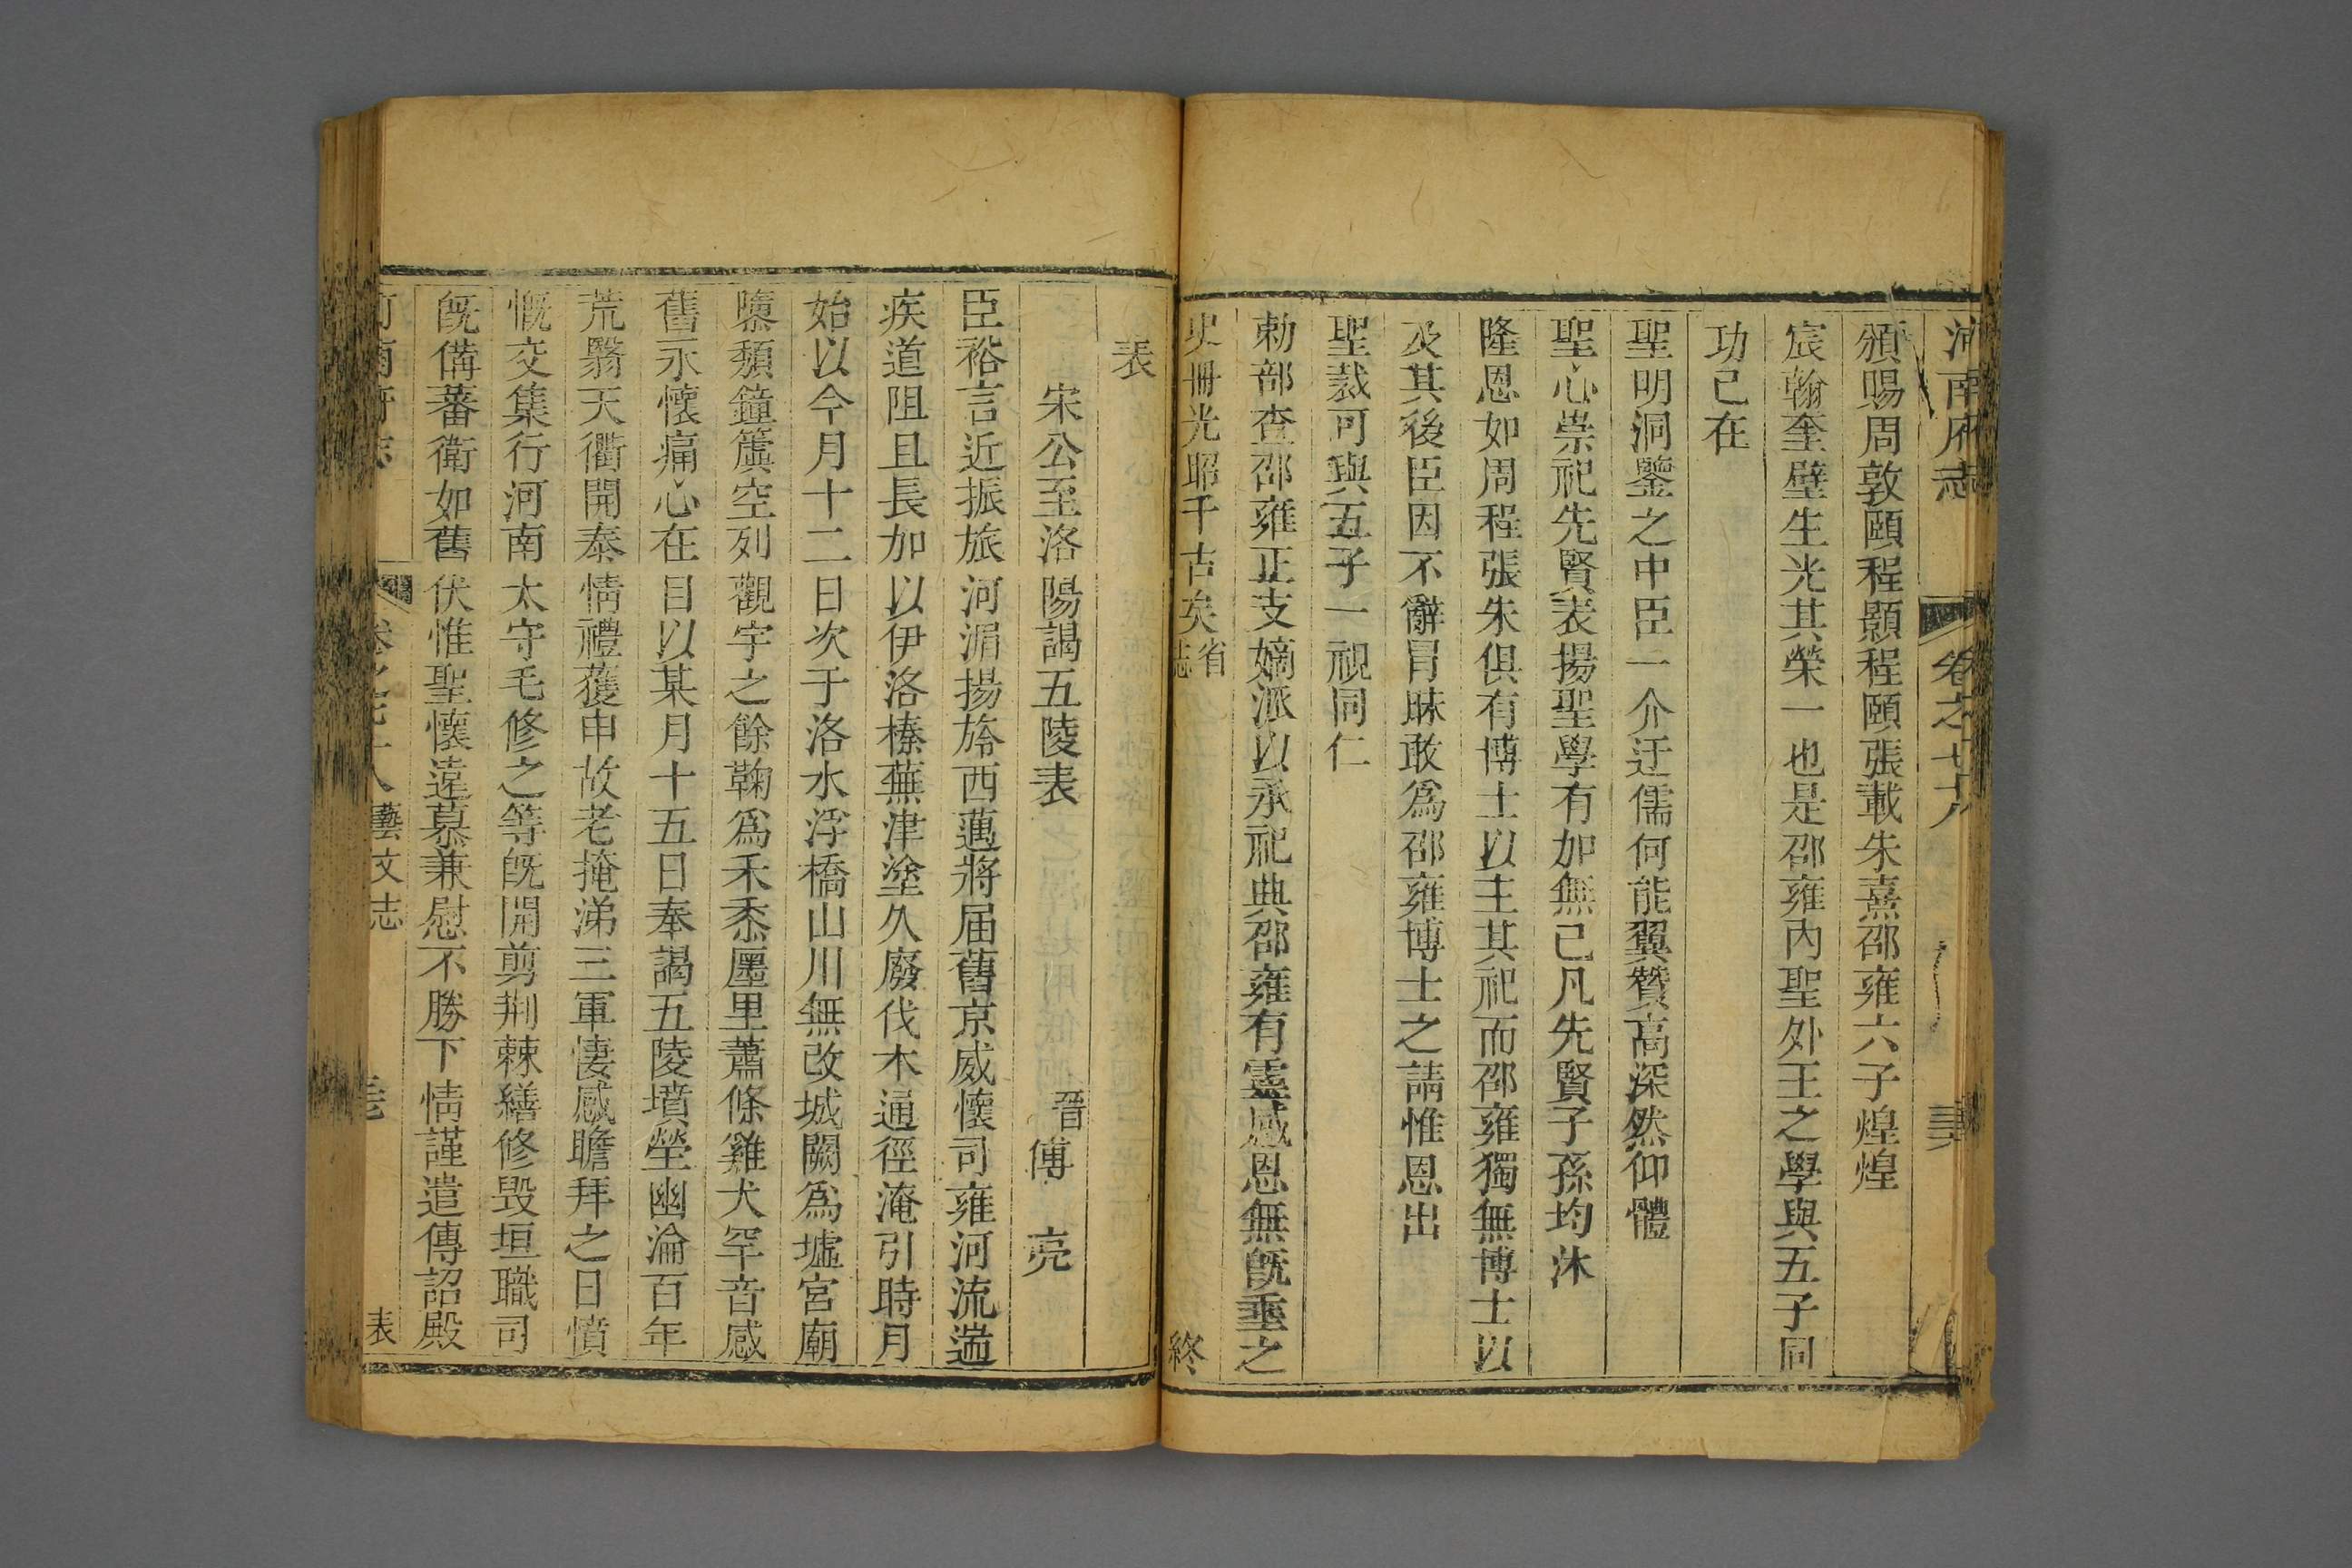 河南府志 卷之七十八
頒賜周敦頤程顥程頤張載朱熹邵雍六子煌煌
宸翰奎璧生光其榮一也是邵雍內聖外王之學與五子同
功已在
聖明洞鑒之中臣一介迂儒何能翼贊高深然仰體
聖心崇祀先賢表揚聖學有加無已凡先賢子孫均沐
隆恩如周程張朱俱有博士以主其祀而邵雍獨無博士以
及其後臣因不辭冒昧敢為邵雍博士之請惟恩出
聖裁可與五子一視同仁
勅部查邵雍正支嫡派以承祀典邵雍有靈感恩無旣垂之
史冊光昭千古矣省志 終
表
宋公至洛陽謁五陵表 晉傅亮
臣裕言近振旅河湄揚旍西邁將届舊京威懷司雍河流遄
疾道阻且長加以伊洛榛蕪津塗久廢伐木通徑淹引時月
始以今月十二日次于洛水浮橋山川無改城闕為墟宮廟
隳頹鐘簴空列觀宇之餘鞠為禾黍廛里蕭條雞犬罕音感
舊永懷痛心在目以某月十五日奉謁五陵墳塋幽淪百年
荒翳天衢開泰情禮獲申故老掩涕三軍悽感瞻拜之日憤
慨交集行河南太守毛修之等旣開剪荆棘繕修毀垣職司
旣備蕃衛如舊伏惟聖懷遠慕兼慰不勝下情謹遣傳詔殿
藝文志 表